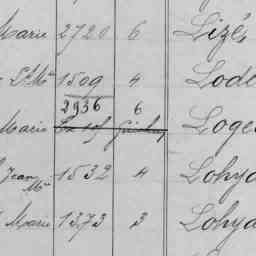 Marie 2720 6 Lizé
St Mn 1509 4 Lode
2936 6
Marie Loge
Jean Mn 1532 4 Lohya
Marie 1373 3 Lohya